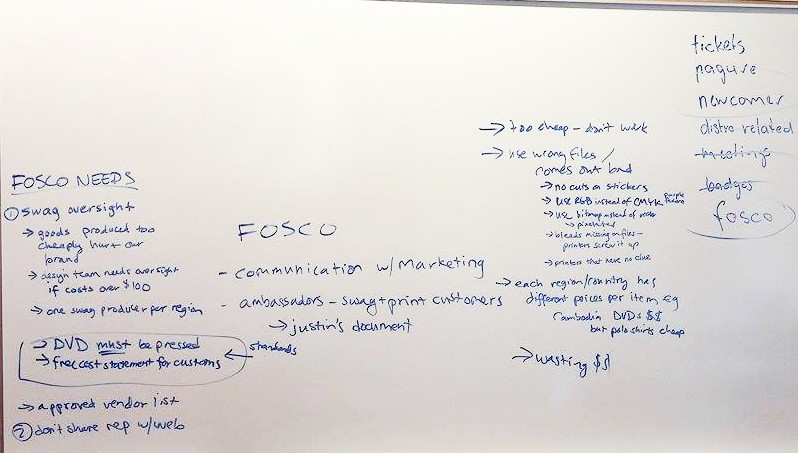 FOSCO NEEDS
① swag oversight
→ goods produced too
cheaply hurt our
brand
→ assign team needs oversight
if costs over $100
→ one swag producer per region
→ DVD must be pressed
→ free cost statement for customs
← standards
→ approved vendor list
② don't share rep w/web
FOSCO
- communication w/Marketing
- ambassadors - swag+print customers
→ justin's document
→ too cheap - don't work
→ use wrong files /
comes out bad
→ no cuts on stickers
→ use RGB instead of CMYK
purple
→ use bitmap instead of vector
→ pixelated
→ bleeds missing on files -
printers screw it up
→ printers that have no clue
→ each region/country has
different prices per item eg
Cambodia DVDs $$
but polo shirts cheap
→ wasting $$
tickets
pagure
newcomer
distro related
meetings
badges
fosco